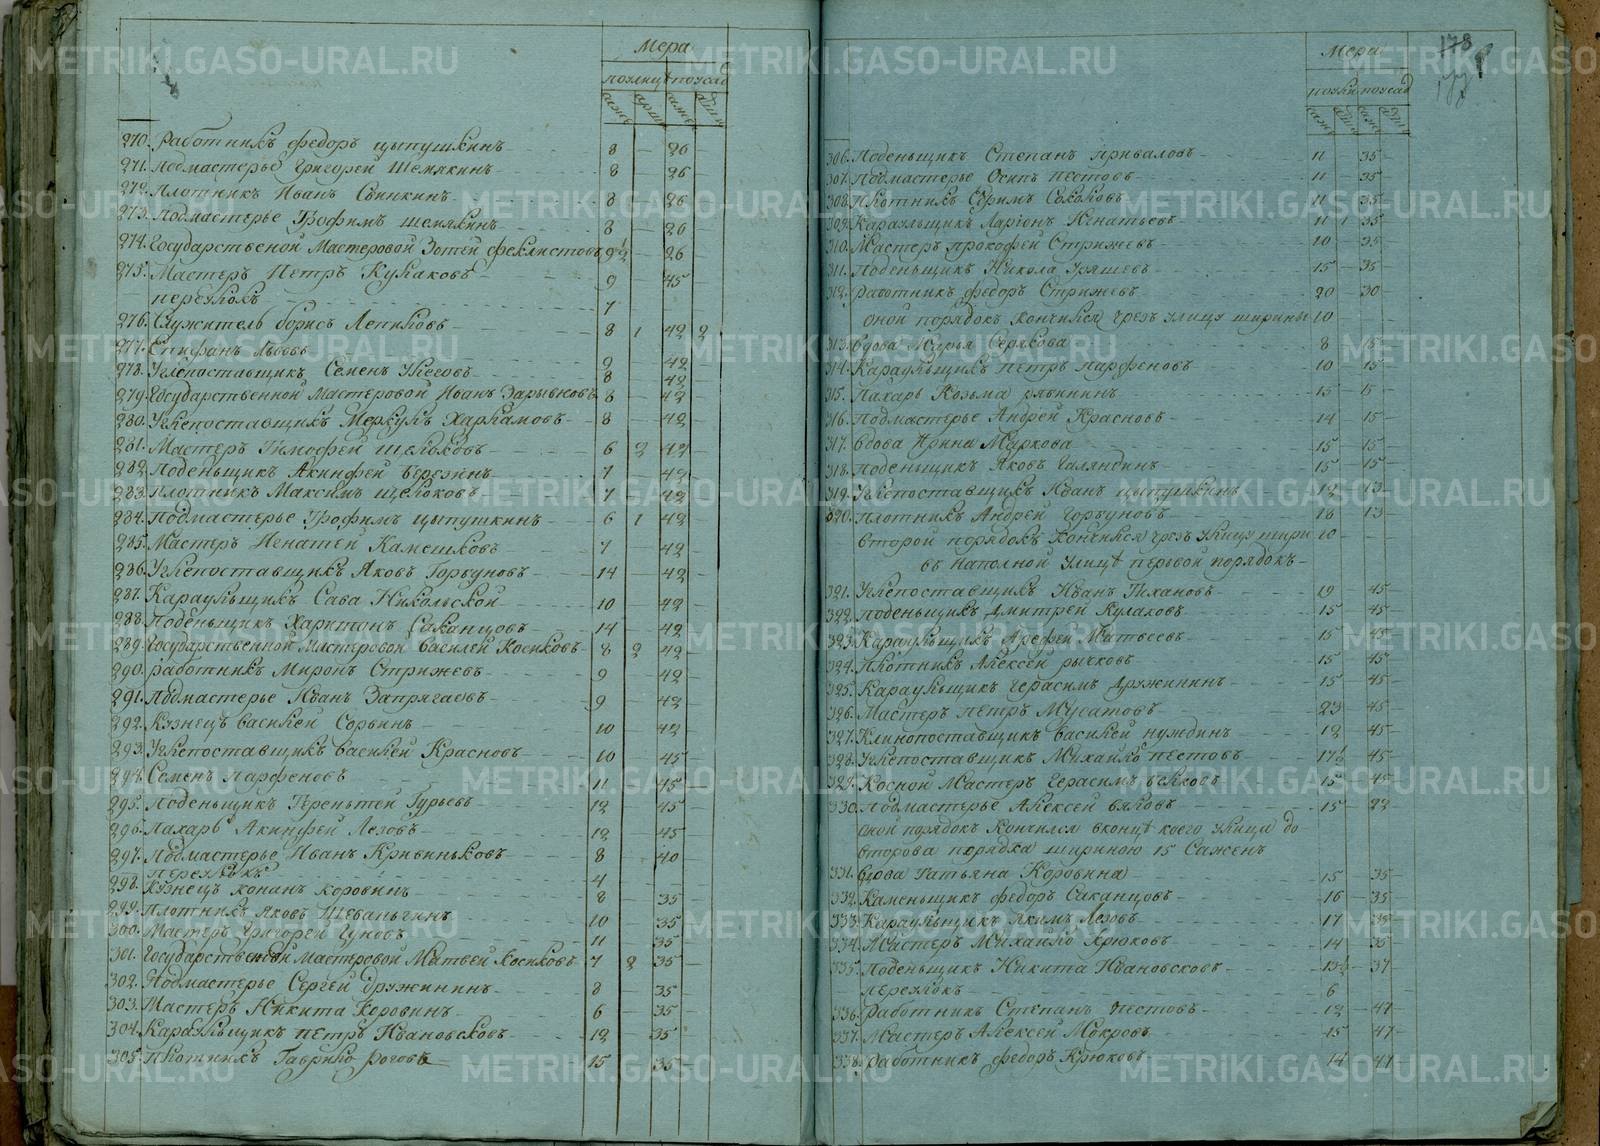 Мера
по улиц по усад
саже арши саже арши
270. Работникъ Федоръ Цыпушкинъ 8 — 26
271. Подмастерье Григорей Шемякинъ 8 — 26
272. Плотникъ Иванъ Свинкинъ 8 — 26
273. Подмастерье Трофимъ Шемякинъ 8 — 26
274. Государственой Мастеровой Зотей Феклистовъ 9½ — 26
275. Мастеръ Петръ Кулаковъ 9 — 45
переулокъ 7
276. Служитель Борисъ Лепиховъ 8 1 42 2
277. Стифанъ Львовъ 9 — 42
278. Углепоставщикъ Семенъ 8 — 42
279. Государственной Мастеровой Иванъ Зарывновъ 8 — 42
280. Углепоставщикъ Меркулъ Харламовъ 8 — 42
281. Мастеръ Тимофей Щелоковъ 6 2 42
282. Поденьщикъ Акинфей Березинъ 7 — 42
283. Плотникъ Максимъ Щелоковъ 7 — 42
284. Подмастерье Трофимъ Цыпушкинъ 6 1 42
285. Мастеръ Игнатей Камешковъ 7 — 42
286. Углепоставщикъ Яковъ Горбуновъ 14 — 42
287. Караульщикъ Сава Никольской 10 — 42
288. Поденьщикъ Харитонъ Саканцовъ 14 — 42
289. Государственной Мастеровой Василей Носиковъ 8 2 42
290. Работникъ Миронъ Стрижевъ 9 — 42
291. Подмастерье Иванъ Запрягаевъ 9 — 42
292. Кузнецъ Василей Сорвинъ 10 — 42
293. Углепоставщикъ Василей Красновъ 10 — 45
294. Семенъ Парфеновъ 11 — 45
295. Поденьщикъ Тереньтей Гурьевъ 12 — 45
296. Пахарь Акинфей Лезовъ 12 — 45
297. Подмастерье Иванъ Кривиньковъ 8 — 40
переулокъ 4
298. Кузнецъ Конанъ Коровинъ 8 — 35
299. Плотникъ Яковъ Шевальгинъ 10 — 35
300. Мастеръ Григорей Гуновъ 11 — 35
301. Государственой Мастеровой Матвей Носиковъ 7 2 35
302. Подмастерье Сергей Дружининъ 8 — 35
303. Мастеръ Никита Коровинъ 6 — 35
304. Караульщикъ Петръ Ивановсковъ 12 — 35
305. Плотникъ Гаврило Роговъ 15 — 35
178
177
Мера
по ули по усад
саже арши саже арши
306. Поденьщикъ Степанъ Приваловъ 11 — 35
307. Подмастерье Осипъ Пестовъ 11 — 35
308. Плотникъ Ефимъ Соколовъ 11 — 35
309. Караульщикъ Ларионъ Игнатьевъ 11 1 35
310. Мастеръ Прокофей Стрижевъ 10 — 35
311. Поденьщикъ Никола Уряшевъ 15 — 35
312. Работникъ Федоръ Стрижевъ 20 — 30
Оной порядокъ кончился чрезъ улицу ширины 10
313. Вдова Марья Серякова 8 — 15
314. Караульщикъ Петръ Парфеновъ 10 — 15
315. Пахарь Козьма Рябининъ 15 — 15
316. Подмастерье Андрей Красновъ 14 — 15
317. Вдова Ирина Муркова 15 — 15
318. Поденьщикъ Яковъ Галяндинъ 15 — 15
319. Углепоставщикъ Иванъ Цыпушкинъ 12 — 13
320. Плотникъ Андрей Горбуновъ 18 — 13
Второй порядокъ кончился чрезъ улицу шири 10
въ Наполной улицѣ первой порядокъ
321. Углепоставщикъ Иванъ Тихановъ 19 — 45
322. Поденьщикъ Дмитрей Кулаковъ 15 — 45
323. Караульщикъ Арефей Матвеевъ 15 — 45
324. Плотникъ Алексей Рычковъ 15 — 45
325. Караульщикъ Герасимъ Дружининъ 15 — 45
326. Мастеръ Петръ Мусатовъ 23 — 45
327. Клинопоставщикъ Василей Нуждинъ 12 — 45
328. Углепоставщикъ Михайло Пестовъ 17½ — 45
329. Косной Мастеръ Герасимъ Беляковъ 15 — 42
330. Подмастерье Алексей Вяловъ 15 — 22
Оной порядокъ кончился вконцѣ коего улица до
второва порядка шириною 15 Саженъ
331. Вдова Татьяна Коровина 15 — 35
332. Каменьщикъ Федоръ Саканцовъ 16 — 35
333. Караульщикъ Якимъ Лезовъ 17 — 35
334. Мастеръ Михайло Крюковъ 14 — 35
335. Поденьщикъ Никита Ивановсковъ 13½ — 37
переулокъ 6
336. Работникъ Степанъ Пестовъ 12 — 47
337. Мастеръ Алексей Мокровъ 15 — 47
338. Работникъ Федоръ Крюковъ 14 — 47
METRIKI.GASO-URAL.RU